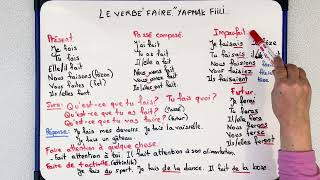 LE VERBE "FAIRE" YAPMAK Fiili
Présent
Je fais
Tu fais
Elle/il fait
Nous faisons (fözon)
Vous faites (fet)
Ils/elles font
Passé composé
J'ai fait
Tu as fait
Il/elle a fait
Nous avons fait
Vous avez fait
Ils/elles ont fait
Imparfait
Je faisais
Tu faisais
Nous faisions
Vous faisiez
Ils faisaient
Futur
Je ferai
Tu feras
Il/elle fera
Nous ferons
Vous ferez
Ils/elles feront
Soru: Qu'est-ce que tu fais? Tu fais quoi?
Qu'est-ce que tu as fait?
Qu'est-ce que tu vas faire?
Réponse: Je fais mes devoirs. Je fais la vaisselle.
Faire attention à quelque chose.
Fait attention à toi. Il fait attention à son alimentation.
Faire de + activité
Je fais du sport. Je fais de la danse. Il fait de la boxe.